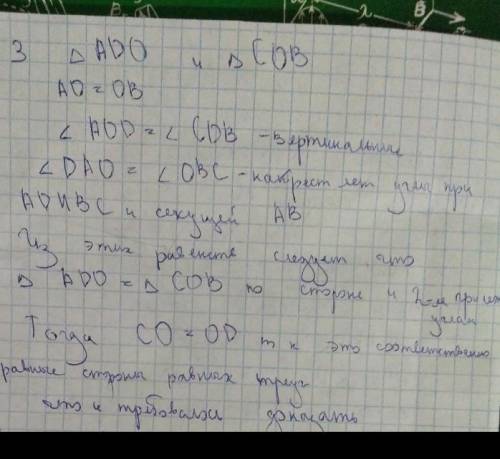 3 △ ADO и △ COB
AO = OB
∠ AOD = ∠ COB - вертикальные
∠ DAO = ∠ OBC - накрест леж углы при
AD и BC и секущей AB
Из этих равенств следует что
△ ADO = △ COB по стороне и 2-м прилеж
углам
Тогда CO = OD т к это соответственно
равные стороны равных треуг
что и требовалось доказать